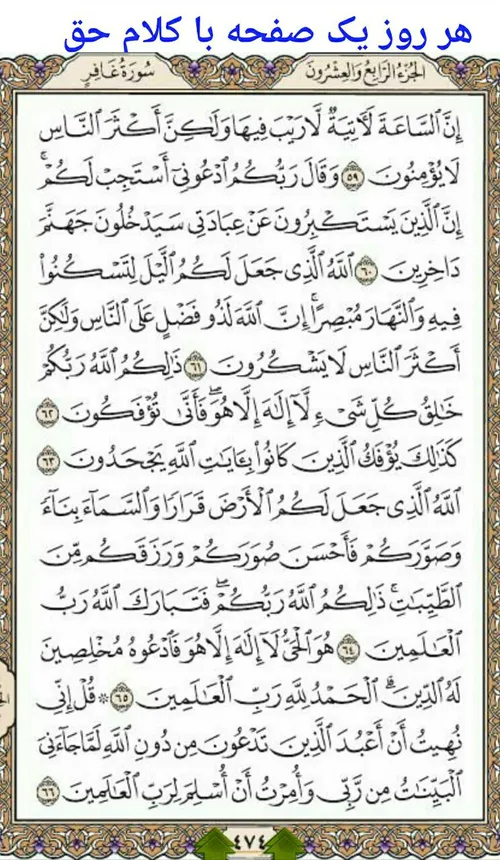 هر روز یک صفحه با کلام حق
الجزء الرابع والعشرون
سورة غافر
إِنَّ ٱلسَّاعَةَ لَأٓتِيَةٌ لَّا رَيْبَ فِيهَا وَلَٰكِنَّ أَكْثَرَ ٱلنَّاسِ
لَا يُؤْمِنُونَ ٥٩ وَقَالَ رَبُّكُمُ ٱدْعُونِىٓ أَسْتَجِبْ لَكُمْ ۚ
إِنَّ ٱلَّذِينَ يَسْتَكْبِرُونَ عَنْ عِبَادَتِى سَيَدْخُلُونَ جَهَنَّمَ
دَاخِرِينَ ٦٠ ٱللَّهُ ٱلَّذِى جَعَلَ لَكُمُ ٱلَّيْلَ لِتَسْكُنُوا۟
فِيهِ وَٱلنَّهَارَ مُبْصِرًا ۚ إِنَّ ٱللَّهَ لَذُو فَضْلٍ عَلَى ٱلنَّاسِ وَلَٰكِنَّ
أَكْثَرَ ٱلنَّاسِ لَا يَشْكُرُونَ ٦١ ذَٰلِكُمُ ٱللَّهُ رَبُّكُمْ
خَٰلِقُ كُلِّ شَىْءٍ لَّآ إِلَٰهَ إِلَّا هُوَ ۖ فَأَنَّىٰ تُؤْفَكُونَ ٦٢
كَذَٰلِكَ يُؤْفَكُ ٱلَّذِينَ كَانُوا۟ بِـَٔايَٰتِ ٱللَّهِ يَجْحَدُونَ ٦٣
ٱللَّهُ ٱلَّذِى جَعَلَ لَكُمُ ٱلْأَرْضَ قَرَارًا وَٱلسَّمَآءَ بِنَآءً
وَصَوَّرَكُمْ فَأَحْسَنَ صُوَرَكُمْ وَرَزَقَكُم مِّنَ
ٱلطَّيِّبَٰتِ ۚ ذَٰلِكُمُ ٱللَّهُ رَبُّكُمْ ۖ فَتَبَارَكَ ٱللَّهُ رَبُّ
ٱلْعَٰلَمِينَ ٦٤ هُوَ ٱلْحَىُّ لَآ إِلَٰهَ إِلَّا هُوَ فَٱدْعُوهُ مُخْلِصِينَ
لَهُ ٱلدِّينَ ۗ ٱلْحَمْدُ لِلَّهِ رَبِّ ٱلْعَٰلَمِينَ ٦٥ ۞ قُلْ إِنِّى
نُهِيتُ أَنْ أَعْبُدَ ٱلَّذِينَ تَدْعُونَ مِن دُونِ ٱللَّهِ لَمَّا جَآءَنِىَ
ٱلْبَيِّنَٰتُ مِن رَّبِّى وَأُمِرْتُ أَنْ أُسْلِمَ لِرَبِّ ٱلْعَٰلَمِينَ ٦٦
٤٧٤